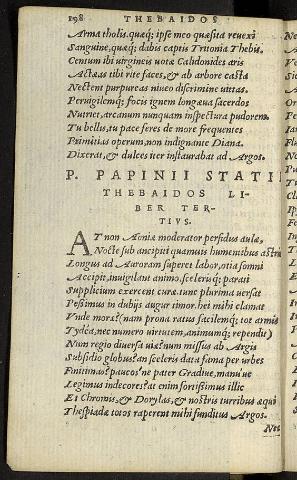 198 THEBAIDOS
Arma tholis, quæq; ipse meo quæsita reuexi
Sanguine, quæq; dabis captis Tritonia Thebis.
Centum ibi virgineis votæ Calidonides aris
Actæas tibi rite faces, & ab arbore casta
Nectent purpureas niueo discrimine vittas.
Peruigilemq; focis ignem longæua sacerdos
Nutriet, arcanum nunquam inspectura pudorem.
Tu bellis, tu pace feres de more frequentes
Primitias operum, non indignante Diana.
Dixerat, & dulces iter instaurabat ad Argos.
P. PAPINII STATII
THEBAIDOS LI-
BER TER-
TIVS.
AT non Aoniæ moderator perfidus aulæ,
Nocte sub ancipiti quamuis humentibus astris
Longus ad Auroram superet labor, otia somni
Accipit, inuigilant animo, scelerisq; parati
Supplicium exercent curæ. tunc plurima versat
Pessimus in dubijs augur timor. hei mihi clamat
Vnde moræ? (nam prona ratus facilemq; tot armis
Tydea, nec numero virtutem, animumq; rependit)
Num regio diuersa viæ? num missus ab Argis
Subsidio globus? an sceleris data fama per vrbes
Finitimas? paucos'ne pater Gradiue, manu'ue
Legimus indecores? at enim fortissimus illic
Et Chromis, & Dorylas, & nostris turribus æqui
Thespiadæ totos raperent mihi funditus Argos.
Nec